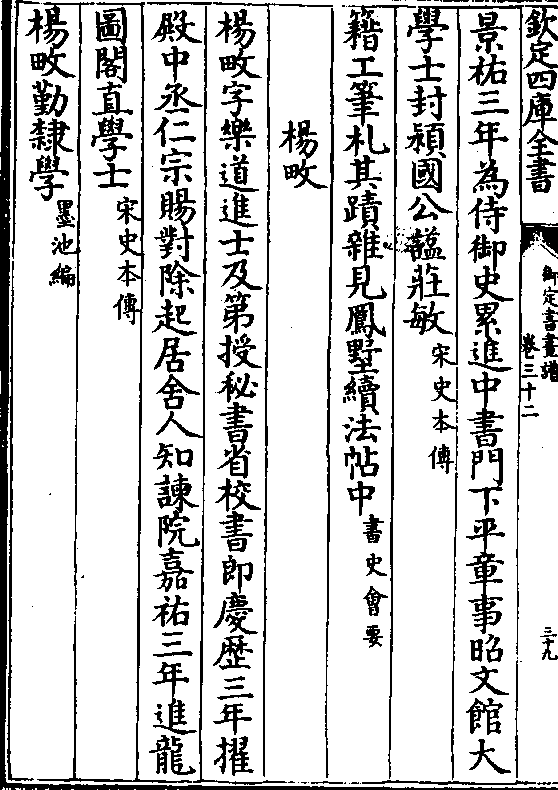 欽定四庫全書
御定書畫譜
卷三十二
三十九
景祐三年為侍御史累進中書門下平章事昭文館大
學士封潁國公諡莊敏宋史本傳
籍工筆札其蹟雜見鳳墅續法帖中書史會要
楊畋
楊畋字樂道進士及第授秘書省校書郎慶歴三年擢
殿中丞仁宗賜對除起居舍人知諫院嘉祐三年進龍
圖閣直學士宋史本傳
楊畋勤隸學墨池編